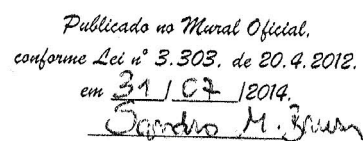 Publicado no Mural Oficial,
conforme Lei nº 3.303, de 20.4.2012.
em 31 / 07 /2014.
Sandro M.